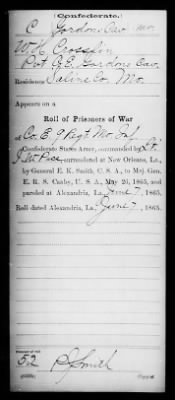 Confederate.
C Gordons Cav Mo
W. H. Crosslin
Pvt C, E, Gordons Cav.
Residence Saline Co, Mo.
Appears on a
Roll of Prisoners of War
Co. E, 9 Regt Mo. Inf,
Confederate States Army, commanded by Lt.
surrendered at New Orleans, La.,
by General E. K. Smith, C. S. A., to Maj. Gen.
E. R. S. Canby, U. S. A., May 26, 1865, and
paroled at Alexandria, La. June 7, 1865.
Roll dated Alexandria, La., June 7, 1865.
Number of roll:
52
Smith
Copyist.